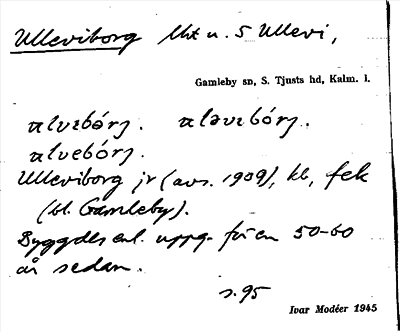 Ulleviborg lht u. S Ullevi,
Gamleby sn, S. Tjusts hd, Kalm. l.
ulvebórj. ulavebórj.
ulvebórj.
Ulleviborg jr (avs. 1909), kb, fek
(bl. Gamleby).
Byggdes enl. uppg. för en 50-60
år sedan.
s. 95
Ivar Modéer 1945